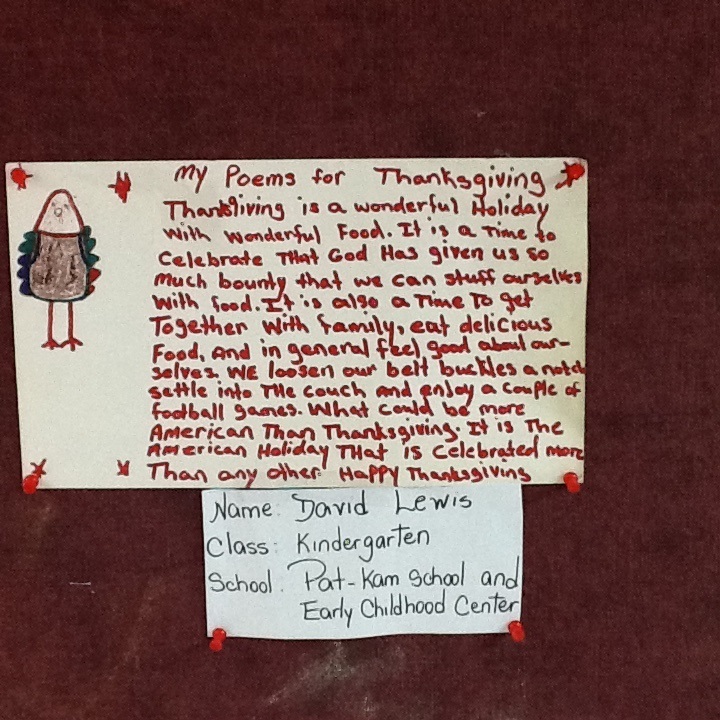 My Poems for Thanksgiving
Thanksgiving is a wonderful Holiday
With wonderful Food. It is a Time to
Celebrate THat God Has given us so
Much bounty that we can stuff ourselves
With food. It is also a Time To get
Together With family, eat delicious
Food, And in general feel good about our-
selves. WE loosen our belt buckles a notch
settle into THe couch and enjoy a couple of
football games. What could be more
American Than Thanksgiving. It is The
American Holiday THat is Celebrated more
Than any other Happy Thanksgiving
Name: David Lewis
Class: Kindergarten
School: Pat-Kam School and
Early Childhood Center